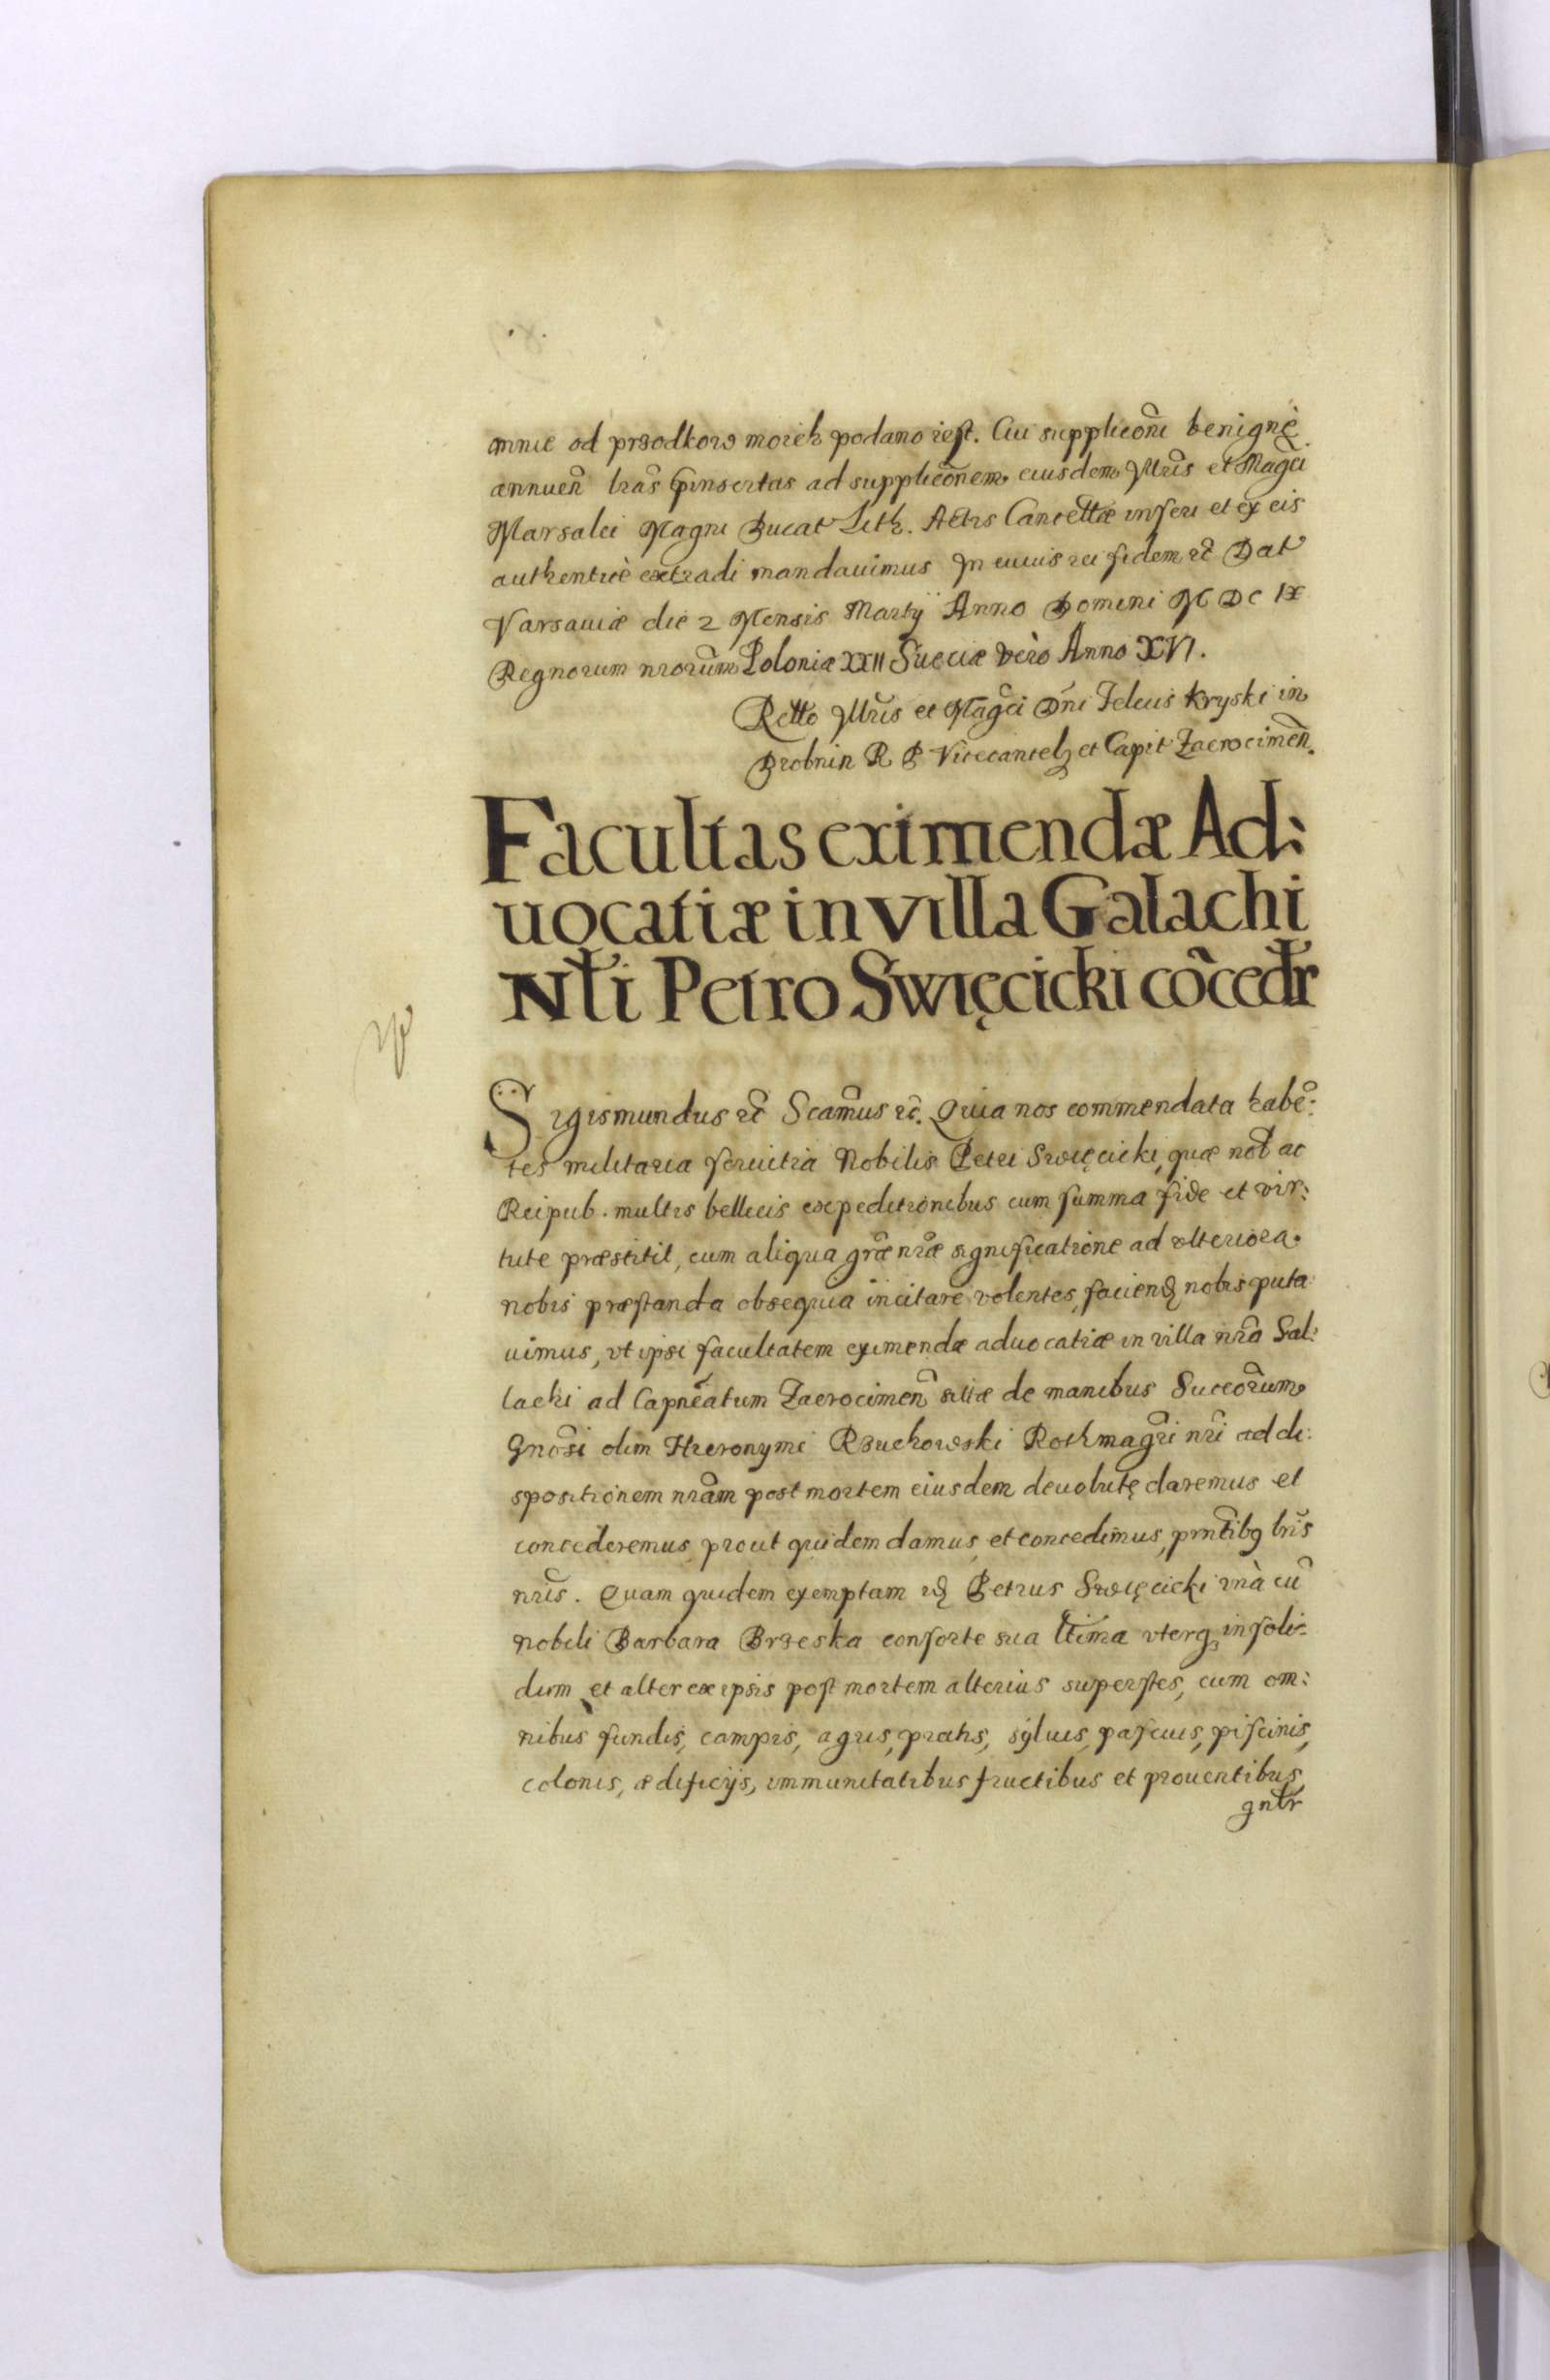 mnie od przodkow moich podano iest. Cui supplicõni benignè
annueñ lrãs p̃insertas ad supplicõnem eiusdem Illrĩs et Magc̃i
Marsalci Magni Ducat Lith. Actis Cancellæ inseri et ex eis
authenticè extradi mandauimus In cuius rei fidem &c̃ Dat
Varsauiæ die 2 Mensis Martij Anno Domini M DC IX
Regnorum nrorũm Poloniæ XXII Sueciæ verò Anno XVI.
Rello Illrĩs et Magc̃i Dñi Felicis Kryski in
Drobnin R P Vicecancel: et Capit Zacrocimeñ.
Facultas eximendæ Ad:
uocatiæ in villa Galachi
Nbli Petro Swięcicki cõcedr
Sigismundus &c̃ Scãmus &c̃. Quia nos commendata habẽ:
tes militaria seruitia Nobilis Petri Swięcicki, quæ nob ac
Reipub. multis bellicis expeditionibus cum summa fide et vir:
tute præstitit, cum aliqua grãæ nrãæ significatione ad vlteriora
nobis præstanda obsequia incitare volentes, faciend nobis puta
uimus, vt ipsi facultatem eximendæ aduocatiæ in villa nrã Gal:
lachi ad Capneãtum Zacrocimeñ sittæ de manibus Succõrum
Gnõsi olim Hieronymi Rzuchowski Rothmagrĩ nrĩ ad di:
spositionem nrãm post mortem eiusdem deuolutę daremus et
concederemus prout quidem damus et concedimus, prntĩbq lrĩs
nrĩs. Quam quidem exemptam id Petrus Swięcicki vnà cũ
nobili Barbara Brzeska consorte sua ltĩma vterq insoli:
dum et alter ex ipsis post mortem alterius superstes, cum om:
nibus fundis, campis, agris, pratis, syluis, pascuis, piscinis,
colonis, ædificijs, immunitatibus fructibus et prouentibus
gnlr